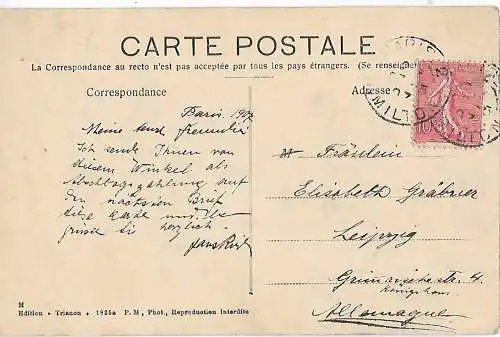 CARTE POSTALE
La Correspondance au recto n'est pas acceptée par tous les pays étrangers. (Se renseigner
Correspondance
Adresse
Paris 1907
Meine
Ich sende Ihnen von
diesem Winkel als
Abschlagszahlung auf
den nächsten Brief
diese Karte und
grüsse Sie herzlich.
Fräulein
Elisabeth Gräbner
Leipzig
Grimmaischestr. 4.
Königshaus
Allemagne
M
Edition - Trianon - 1825a P. M, Phot., Reproduction Interdite
PARIS
MILTON
10